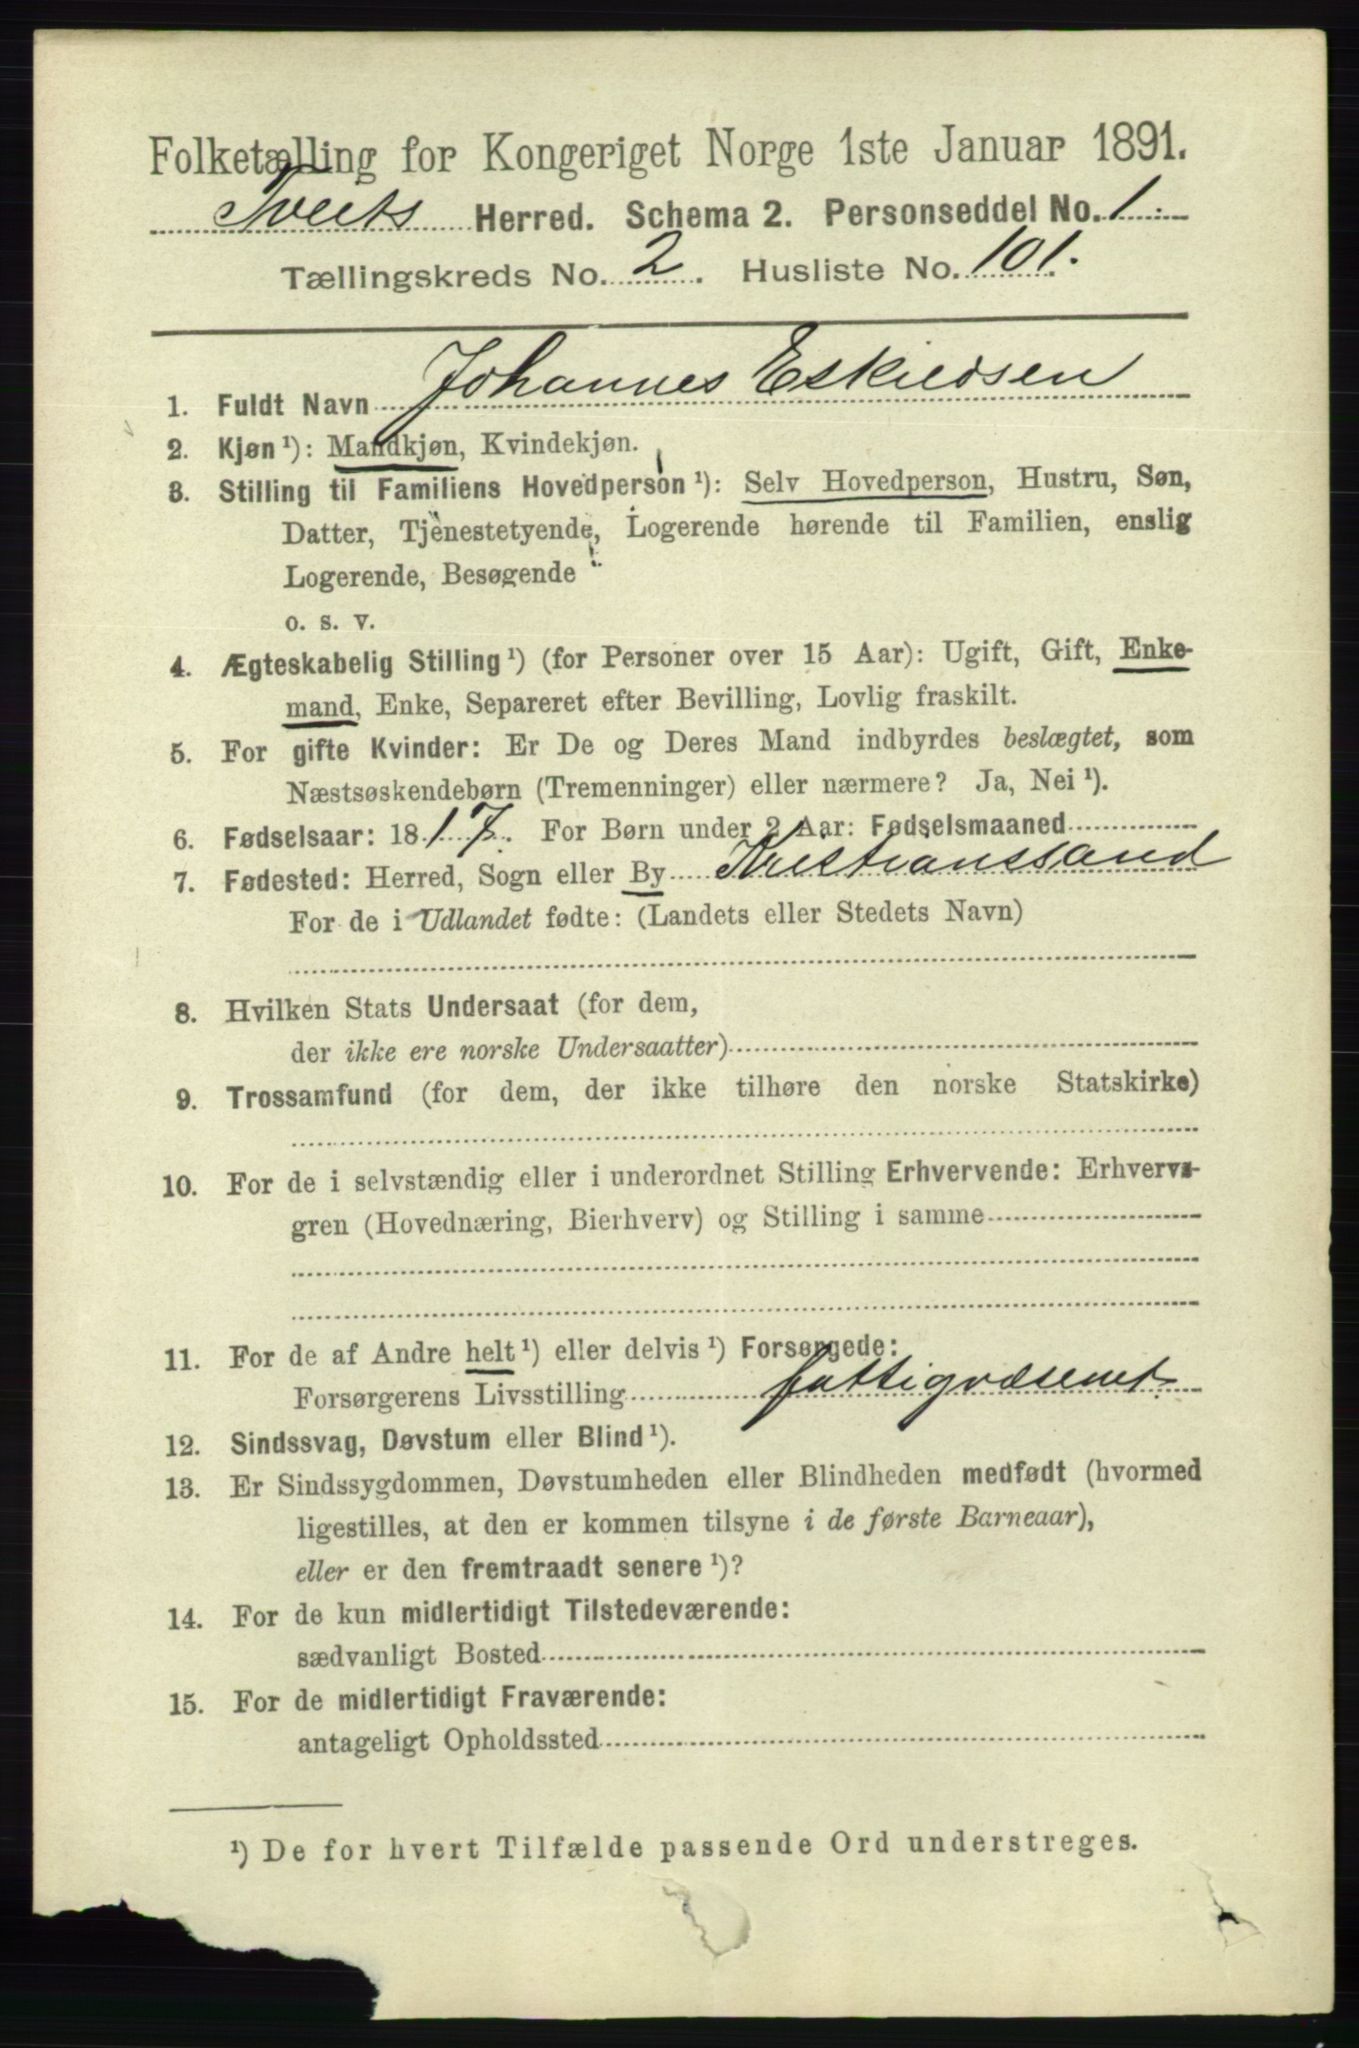 Folketælling for Kongeriget Norge 1ste Januar 1891.
Tveits Herred. Schema 2. Personseddel No. 1.
Tællingskreds No. 2. Husliste No. 101.
1. Fuldt Navn Johannes Eskildsen
2. Kjøn ¹): Mandkjøn, Kvindekjøn.
3. Stilling til Familiens Hovedperson ¹): Selv Hovedperson, Hustru, Søn,
Datter, Tjenestetyende, Logerende hørende til Familien, enslig
Logerende, Besøgende
o. s. v.
4. Ægteskabelig Stilling ¹) (for Personer over 15 Aar): Ugift, Gift, Enke-
mand, Enke, Separeret efter Bevilling, Lovlig fraskilt.
5. For gifte Kvinder: Er De og Deres Mand indbyrdes beslægtet, som
Næstsøskendebørn (Tremenninger) eller nærmere? Ja, Nei ¹).
6. Fødselsaar: 1817. For Børn under 2 Aar: Fødselsmaaned
7. Fødested: Herred, Sogn eller By Kristianssand
For de i Udlandet fødte: (Landets eller Stedets Navn)
8. Hvilken Stats Undersaat (for dem,
der ikke ere norske Undersaatter)
9. Trossamfund (for dem, der ikke tilhøre den norske Statskirke)
10. For de i selvstændig eller i underordnet Stilling Erhvervende: Erhvervs-
gren (Hovednæring, Bierhverv) og Stilling i samme
11. For de af Andre helt ¹) eller delvis ¹) Forsørgede:
Forsørgerens Livsstilling fattigvæsenet.
12. Sindssvag, Døvstum eller Blind ¹).
13. Er Sindssygdommen, Døvstumheden eller Blindheden medfødt (hvormed
ligestilles, at den er kommen tilsyne i de første Barneaar),
eller er den fremtraadt senere ¹)?
14. For de kun midlertidigt Tilstedeværende:
sædvanligt Bosted
15. For de midlertidigt Fraværende:
antageligt Opholdssted
¹) De for hvert Tilfælde passende Ord understreges.